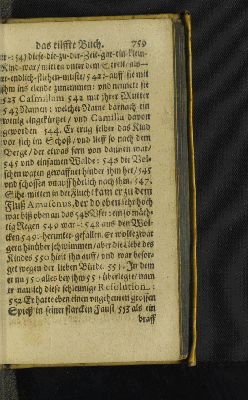 das eilffte Buch. 759
ur-:34) diese-die-zu-der-Zeit-gar-ein-klein-
Kind-war/ mitten unter dem Streit/als-
er-endlich-fliehen-muste/ 542-: auff sie mit
ihm ins elende zunemmen: und nennete sie
523 Casmillam 542 mit ihrer Mutter
543 Namen: welcher Name darnach ein
wenig eingekürtzet/ und Camilla davon
geworden 544. Er trug selber das Kind
vor sich im Schoß/ und lieff so nach dem
Berge/ der etwas fern von dannen war/
545 und einsamen Walde: 546 die Vol-
schen waren gewaffnet hinder ihm her/ 545
und schossen unauffhörlich nach ihm. 547.
Sihe mitten in der Flucht/ kam er zu dem
Fluß Amasenus, der do oben sehr hoch
war biß oben an das 548 Ufer: ein so mäch-
tig Regen 549 war-: 548 aus den Wol-
cken 549-: herunter-gefallen. Er wolte zwat
gern hinüber schwimmen/ aber die Liebe des
Kindes 550 hielt ihn auff/ und war besor-
get wegen der lieben Bürde. 551. In dem
er nu 550 alles bey sich 551 überlegte/ nam
er nau lich diese schleunige Resolution.:
552 Er hatte eben einen ungeheuren grossen
Spieß in seiner starcken Faust 553 als ein
braff